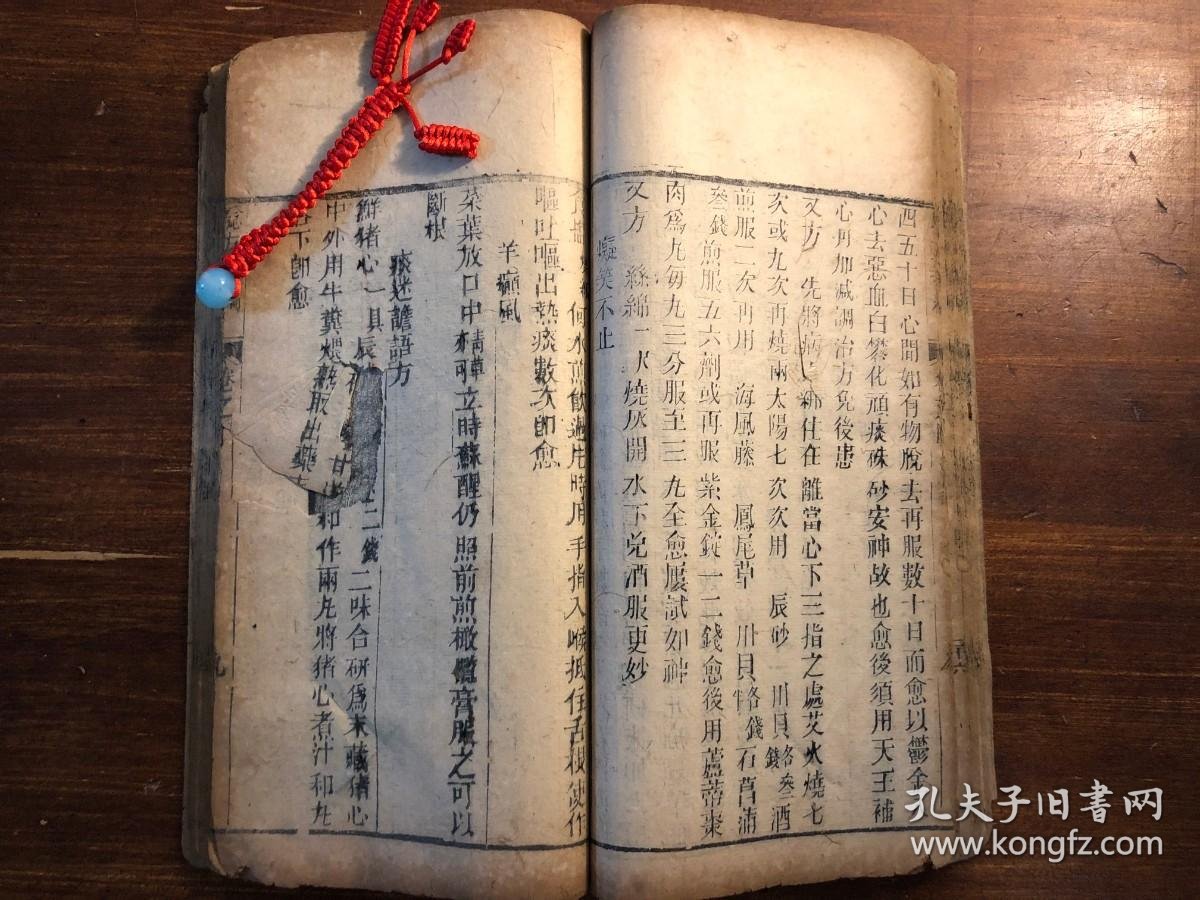 西五十日心間如有物脫去再服數十日而愈以鬱金
心去惡血白礬化頑痰硃砂安神故也愈後須用天王補
心丹加減調治方免後患
又方　先將病　綁住在離當心下三指之處艾火燒七
次或九次再燒兩太陽七次次用　辰砂　川貝各叁錢酒
煎服二次再用　海風藤　鳳尾草　川貝各錢石菖蒲
叁錢煎服五六劑或再服紫金錠一二錢愈後用蘆蒂棗
肉為丸每九三分服至三二九全愈屢試如神
又方　絲綿一　燒灰開水下兌酒服更妙
癡笑不止
何水煎飲過片時用手指入喉抵住舌根使作
嘔吐嘔出熱痰數次即愈
羊癲風
菜葉放口中　立時蘇醒仍照前煎橄欖膏服之可以
斷根
痰迷譫語方
鮮猪心一具辰　二錢二味合研為末藏猪心
中外用牛糞煨熟取出藥　甘　和作兩丸將猪心煮汁和丸
下即愈
卷之
九
孔夫子旧書网
www.kongfz.com